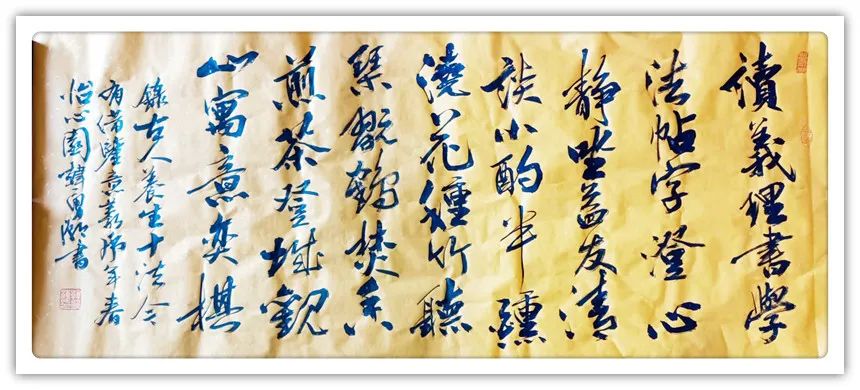 讀義理書學
法帖字澄心
静坐益友清
談小酌半醺
澆花種竹聽
琴翫鶴焚香
煎茶登城觀
山寓意奕棋
錄古人養生十法今
有借鑒意義年春
怡心園韓書